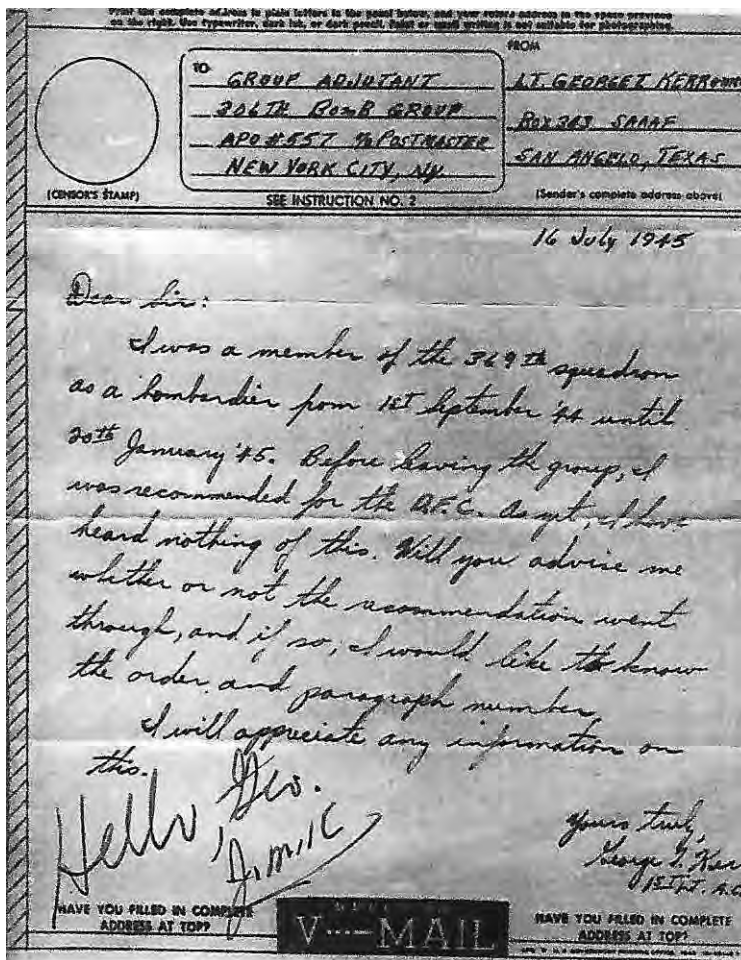 Print the complete address in plain letters in the panel below, and your return address in the space provided
on the right. Use typewriter, dark ink, or dark pencil. Faint or small writing is not suitable for photographing.
TO
GROUP ADJUTANT
306TH BOMB GROUP
APO #557 % POSTMASTER
NEW YORK CITY, NY.
FROM
LT. GEORGE I
BOX 303 SAAAF
SAN ANGELO, TEXAS
(CENSOR'S STAMP)
SEE INSTRUCTION NO. 2
(Sender's complete address above)
16 July 1945
Dear Sir:
I was a member of the 369th squadron
as a bombardier from 1ST September '44 until
20th January '45. Before leaving the group, I
was recommended for the D.F.C. As yet, I have
heard nothing of this. Will you advise me
whether or not the recommendation went
through, and if so, I would like to know
the order and paragraph number.
I will appreciate any information on
this.
Hello, Geo.
Yours truly,
George I. Ker
1ST LT. A.C
HAVE YOU FILLED IN COMPLETE
ADDRESS AT TOP?
V···—MAIL
HAVE YOU FILLED IN COMPLETE
ADDRESS AT TOP?